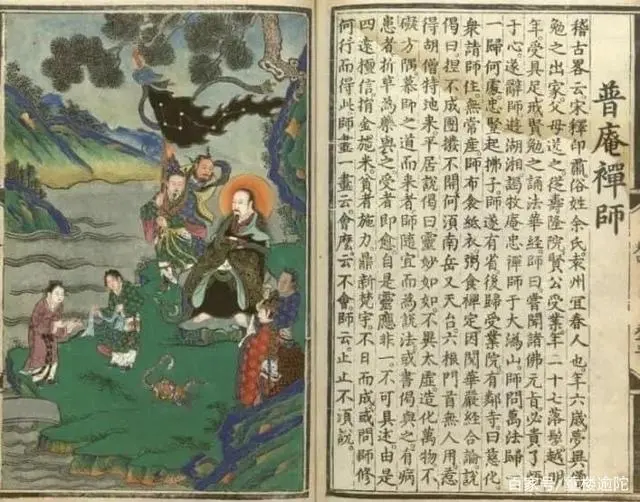 普庵禪師
稽古畧云宋釋印肅俗姓余氏袁州宜春人也年六歲夢異僧
勉之出家父母送之從壽隆院賢公受業年二十七落髮越明
年受具足戒賢勉之誦法華經師曰嘗聞諸佛元旨必貴了悟
于心遂辭師遊湖湘謁牧庵忠禪師于大溈山師問萬法歸
一歸何處忠竪起拂子師遂有省後歸受業院有鄰寺曰慈化
衆請師住無常産師布衾紙衣粥食禪定因閱華嚴經合論說
偈曰捏不成團撥不開何須南岳又天台六根門首無人用惹
得胡僧特地来平居說偈曰靈妙如如不異太虛造化萬物不
礙方隅慕師之道而来者師隨宜而為說法或書偈與之有病
患者折草為藥與之受者即愈自是靈應非一不可具述由是
四遠檀信捐金施米貧者施力鼎新梵宇不日而成或問師修
何行而得此師畫一畫云會麽云不會師云止止不須說
百家号/重楼渝陀